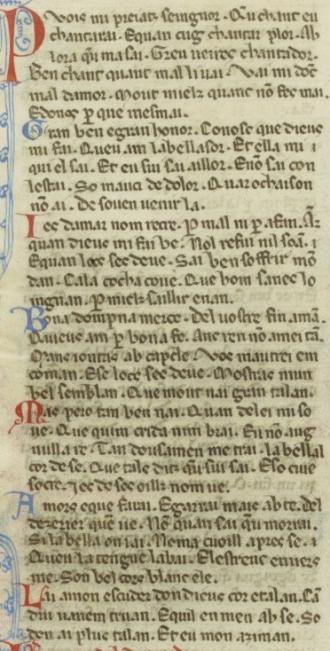 Pvois mi preiatz seingnor. Qu chant eu
chantarai. Equan cug chantar plor. Ab
lora qi ma sai. Greu veirec chantador.
Ben chant quant mal li vai. Vai mi doc
mal damor. Mout mielz quant no fec mai.
Edonc p que mesmai.
Gran ben e gran honor. Conosc que dieus
mi fai. Queu am la bellasor. Et ella mi
qui el sai. Et eu sui sai aillor. E no sai con
lestai. So mauci de dolor. Quar ochaison
no ai. De soven venir la.
Ies damar nom recre. P mal ni p afan. Ar
quan dieus mi fai be. Nol refui nil soan.
Equan locs ses deve. Sai ben soffrir mo
dan. Cala cocha cove. Que hom sanes lo
ingnan. P mielz saillir enan.
Bona dompna merce. Del vostre fin aman.
Qaieus am p bona fe. Anc ren no amei tan.
Mans iontas ab cap cle. Vos mautrei em
coman. E se locs ses deve. Mostras mun
bel semblan. Que mout nai gran talan.
Mas pero tan ben nai. Quan de lei mi so
ve. Que quim crida nim brai. Eu no aug
nulla re. Tan dousamen me trai. La bellal
cor de se. Que tals diz qui sui sai. E so cuie
so cre. Ies de sos oills nom ve.
Amors e que farai. E garrai mais ab te. Del
dezerier que ve. No quan sai qu morrai.
Si la bella on iai. Noma cuoill apres se.
Queu la tengue labai. E lestrene envers
me. Son bel cors blanc e le.
Lai amon escuder don dieus cor e talan. Ca
dui nanem truan. E quil en men ab se. So
den ai plus talan. Et eu mon aziman.